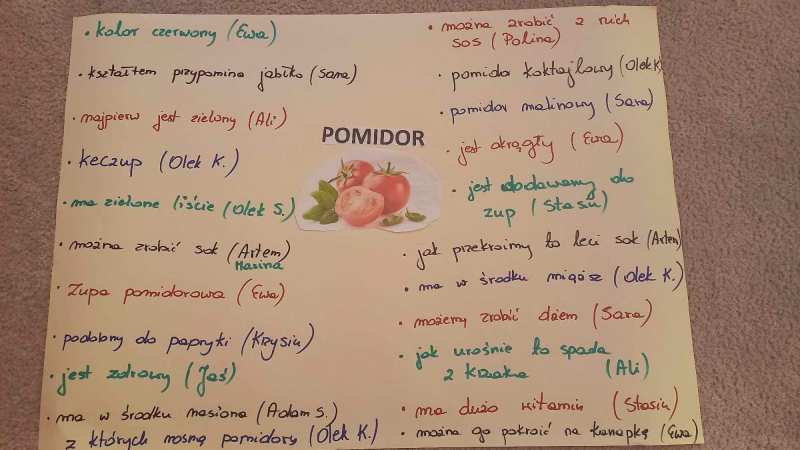 • kolor czerwony (Ewa)
• kształtem przypomina jabłko (Sara)
• najpierw jest zielony (Ali)
• keczup (Olek K.)
• ma zielone liście (Olek S.)
• można zrobić sok (Artem)
Marina
• Zupa pomidorowa (Ewa)
• podobny do papryki (Krysiu)
• jest zdrowy (Jaś)
• ma w środku nasiona (Adam S.)
z których rosną pomidory (Olek K.)
POMIDOR
• można zrobić z nich
sos (Polina)
• pomidor koktajlowy (Olek K)
• pomidor malinowy (Sara)
• jest okrągły (Ewa)
• jest dodawany do
zup (Stasiu)
• jak przekroimy to leci sok (Artem)
• ma w środku miąższ (Olek K.)
• możemy zrobić dżem (Sara)
• jak urośnie to spada
z krzaka (Ali)
• ma dużo witamin (Stasiu)
• można go pokroić na kanapkę (Ewa)